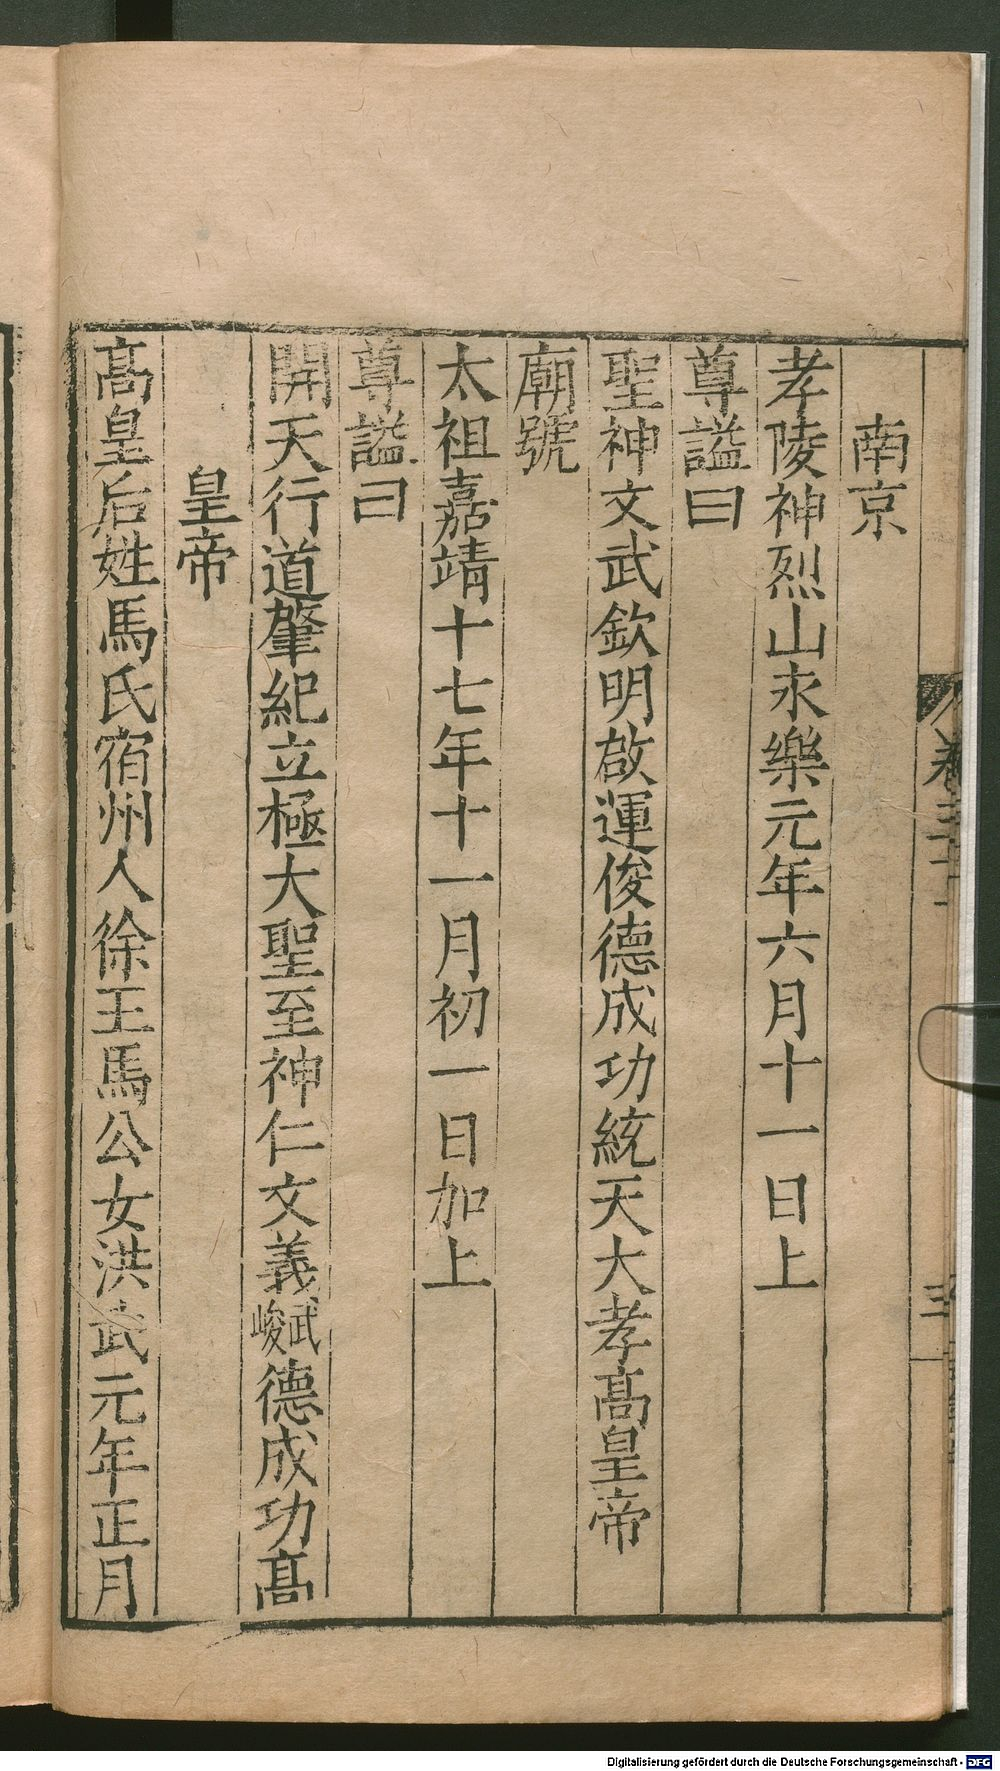 南京
孝陵神烈山永樂元年六月十一日上
尊謚曰
聖神文武欽明啟運俊德成功統天大孝髙皇帝
廟號
太祖嘉靖十七年十一月初一日加上
尊謚曰
開天行道肇紀立極大聖至神仁文義武峻德成功髙
皇帝
髙皇后姓馬氏宿州人徐王馬公女洪武元年正月
Digitalisierung gefördert durch die Deutsche Forschungsgemeinschaft - DFG